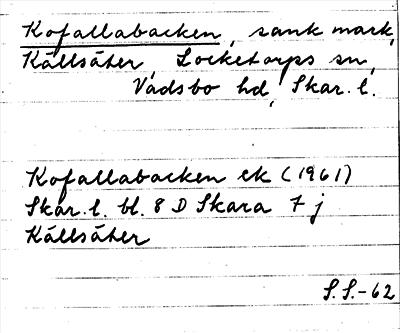 Kofallabacken, sank mark,
Källsäter, Locketorps sn,
Vadsbo hd, Skar. l.
Kofallabacken ek (1961)
Skar. l. bl. 8 D Skara 7 j
Källsäter
S.S.-62